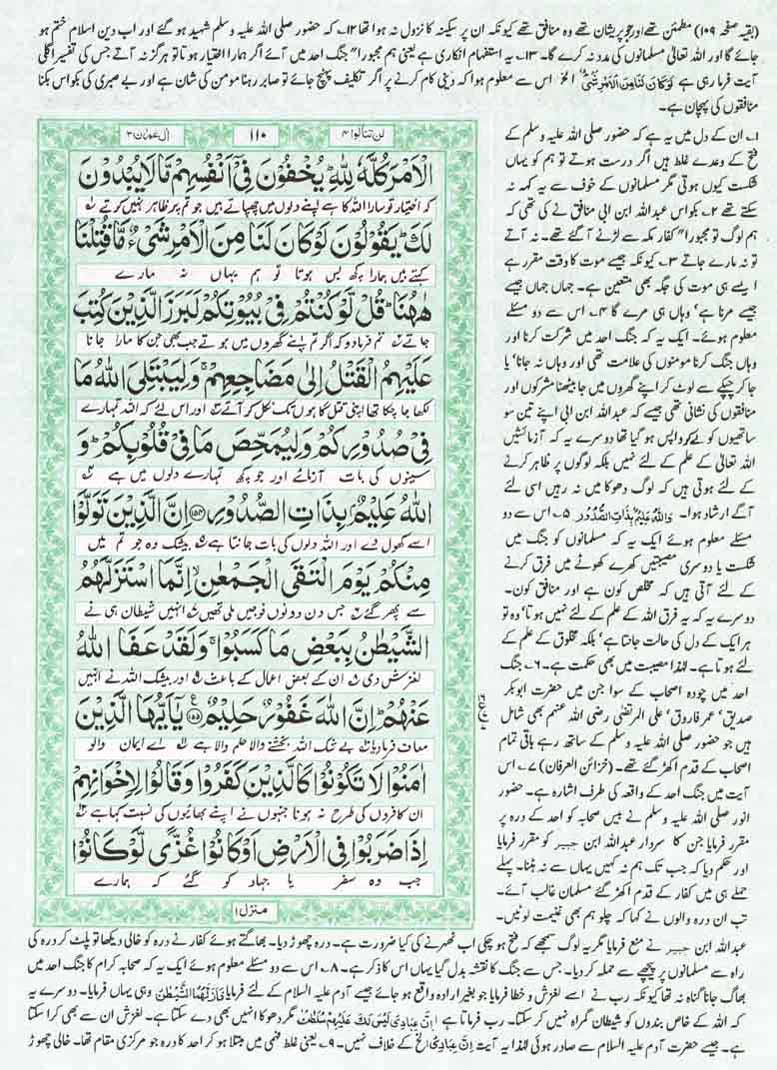 (بقیہ صفحہ ۱۰۹) مطمئن تھے اور جو پریشان تھے وہ منافق تھے کیونکہ ان پر سکینہ کا نزول نہ ہوا تھا ۱۲؎ کہ حضور صلی اللہ علیہ وسلم شہید ہو گئے اور اب دین اسلام ختم ہو
جائے گا اور اللہ تعالیٰ مسلمانوں کی مدد نہ کرے گا۔ ۱۳؎ یہ استفہام انکاری ہے یعنی ہم مجبوراً جنگ احد میں آئے اگر ہمارا اختیار ہوتا تو ہرگز نہ آتے جس کی تفسیر اگلی
آیت فرما رہی ہے لَوْ كَانَ لَنَا مِنَ الْاَمْرِ شَیْءٌ الخ اس سے معلوم ہوا کہ دینی کام کرنے پر اگر تکلیف پہنچ جائے تو صابر رہنا مومن کی شان ہے اور بے صبری کی بکواس بکنا
منافقوں کی پہچان ہے۔
اٰل عمرٰن ۳
۱۱۰
لن تنالوا ۴
الْاَمْرَ كُلَّهٗ لِلّٰهِ ؕ یُخْفُوْنَ فِیْۤ اَنْفُسِهِمْ مَّا لَا یُبْدُوْنَ
کہ اختیار تو سارا اللہ کا ہے اپنے دلوں میں چھپاتے ہیں جو تم پر ظاہر نہیں کرتے
لَكَ ؕ یَقُوْلُوْنَ لَوْ كَانَ لَنَا مِنَ الْاَمْرِ شَیْءٌ مَّا قُتِلْنَا
کہتے ہیں ہمارا کچھ بس ہوتا تو ہم یہاں نہ مارے
هٰهُنَا ؕ قُلْ لَّوْ كُنْتُمْ فِیْ بُیُوْتِكُمْ لَبَرَزَ الَّذِیْنَ كُتِبَ
جاتے تم فرما دو کہ اگر تم اپنے گھروں میں ہوتے جب بھی جن کا مارا جانا
عَلَیْهِمُ الْقَتْلُ اِلٰی مَضَاجِعِهِمْ ۚ وَ لِیَبْتَلِیَ اللّٰهُ مَا
لکھا جا چکا تھا اپنی قتل گاہوں تک نکل کر آتے اور اس لئے کہ اللہ تمہارے
فِیْ صُدُوْرِكُمْ وَ لِیُمَحِّصَ مَا فِیْ قُلُوْبِكُمْ ؕ وَ
سینوں کی بات آزمائے اور جو کچھ تمہارے دلوں میں ہے
اللّٰهُ عَلِیْمٌۢ بِذَاتِ الصُّدُوْرِ ﴿۱۵۴﴾ اِنَّ الَّذِیْنَ تَوَلَّوْا
اسے کھول دے اور اللہ دلوں کی بات جانتا ہے بیشک وہ جو تم میں
مِنْكُمْ یَوْمَ الْتَقَی الْجَمْعٰنِ ۙ اِنَّمَا اسْتَزَلَّهُمُ
سے پھر گئے جس دن دونوں فوجیں ملی تھیں انہیں شیطان ہی نے
الشَّیْطٰنُ بِبَعْضِ مَا كَسَبُوْا ۚ وَ لَقَدْ عَفَا اللّٰهُ
لغزش دی ان کے بعض اعمال کے باعث اور بیشک اللہ نے انہیں
عَنْهُمْ ؕ اِنَّ اللّٰهَ غَفُوْرٌ حَلِیْمٌ ﴿۱۵۵﴾ یٰۤاَیُّهَا الَّذِیْنَ
معاف فرما دیا بے شک اللہ بخشنے والا حلم والا ہے اے ایمان والو
اٰمَنُوْا لَا تَكُوْنُوْا كَالَّذِیْنَ كَفَرُوْا وَ قَالُوْا لِاِخْوَانِهِمْ
ان کافروں کی طرح نہ ہونا جنہوں نے اپنے بھائیوں کی نسبت کہا
اِذَا ضَرَبُوْا فِی الْاَرْضِ اَوْ كَانُوْا غُزًّی لَّوْ كَانُوْا
جب وہ سفر یا جہاد کو گئے کہ ہمارے
منزل ۱
۱؎ ان کے دل میں یہ ہے کہ حضور صلی اللہ علیہ وسلم کے
فتح کے وعدے غلط ہیں اگر درست ہوتے تو ہم کو یہاں
شکست کیوں ہوتی مگر مسلمانوں کے خوف سے یہ کہہ نہ
سکتے تھے ۲؎ بکواس عبداللہ ابن ابی منافق نے کی تھی کہ
ہم لوگ تو مجبوراً کفار مکہ سے لڑنے آ گئے تھے۔ نہ آتے
تو نہ مارے جاتے ۳؎ کیونکہ جیسے موت کا وقت مقرر ہے
ایسے ہی موت کی جگہ بھی متعین ہے۔ جہاں جہاں جسے
جیسے مرنا ہے وہاں ہی مرے گا ۴؎ اس سے دو مسئلے
معلوم ہوئے۔ ایک یہ کہ جنگ احد میں شرکت کرنا اور
وہاں جنگ کرنا مومنوں کی علامت تھی اور وہاں نہ جانا یا
جا کر چپکے سے لوٹ کر اپنے گھروں میں جا بیٹھنا مشرکوں اور
منافقوں کی نشانی تھی جیسے کہ عبداللہ ابن ابی اپنے تین سو
ساتھیوں کو لے کر واپس ہو گیا تھا دوسرے یہ کہ آزمائشیں
اللہ تعالیٰ کے علم کے لئے نہیں بلکہ لوگوں پر ظاہر کرنے
کے لئے ہوتی ہیں کہ لوگ دھوکا میں نہ رہیں اسی لئے
آگے ارشاد ہوا۔ وَاللّٰهُ عَلِیْمٌۢ بِذَاتِ الصُّدُوْر ۵؎ اس سے دو
مسئلے معلوم ہوئے ایک یہ کہ مسلمانوں کو جنگ میں
شکست یا دوسری مصیبتیں کھرے کھوٹے میں فرق کرنے
کے لئے آتی ہیں کہ مخلص کون ہے اور منافق کون۔
دوسرے یہ کہ یہ فرق اللہ کے علم کے لئے نہیں ہوتا وہ تو
ہر ایک کے دل کی حالت جانتا ہے بلکہ مخلوق کے علم کے
لئے ہوتا ہے۔ لہٰذا مصیبت میں بھی حکمت ہے۔ ۶؎ جنگ
احد میں چودہ اصحاب کے سوا جن میں حضرت ابوبکر
صدیق، عمر فاروق، علی المرتضیٰ رضی اللہ عنہم بھی شامل
ہیں جو حضور صلی اللہ علیہ وسلم کے ساتھ رہے باقی تمام
اصحاب کے قدم اکھڑ گئے تھے۔ (خزائن العرفان) ۷؎ اس
آیت میں جنگ احد کے واقعہ کی طرف اشارہ ہے۔ حضور
انور صلی اللہ علیہ وسلم نے بیس صحابہ کو احد کے درہ پر
مقرر فرمایا جن کا سردار عبداللہ ابن جبیر کو مقرر فرمایا
اور حکم دیا کہ جب تک ہم نہ کہیں یہاں سے نہ ہٹنا۔ پہلے
حملے ہی میں کفار کے قدم اکھڑ گئے مسلمان غالب آئے۔
تب ان درہ والوں نے کہا کہ چلو ہم بھی غنیمت لوٹیں۔
عبداللہ ابن جبیر نے منع فرمایا مگر یہ لوگ سمجھے کہ فتح ہو چکی اب ٹھہرنے کی کیا ضرورت ہے۔ درہ چھوڑ دیا۔ بھاگتے ہوئے کفار نے درہ کو خالی دیکھا تو پلٹ کر درہ کی
راہ سے مسلمانوں پر پیچھے سے حملہ کر دیا۔ جس سے جنگ کا نقشہ بدل گیا یہاں اس کا ذکر ہے۔ ۸؎ اس سے دو مسئلے معلوم ہوئے ایک یہ کہ صحابہ کرام کا جنگ احد میں
بھاگ جانا گناہ نہ تھا کیونکہ رب نے اسے لغزش و خطا فرمایا جو بغیر ارادہ واقع ہو جائے جیسے آدم علیہ السلام کے لئے فرمایا فَاَزَلَّهُمَا الشَّیْطٰنُ وہی یہاں فرمایا۔ دوسرے یہ
کہ اللہ کے خاص بندوں کو شیطان گمراہ نہیں کر سکتا۔ رب فرماتا ہے اِنَّ عِبَادِیْ لَیْسَ لَكَ عَلَیْهِمْ سُلْطٰنٌ مگر دھوکا انہیں بھی دے سکتا ہے۔ لغزش ان سے بھی کرا سکتا
ہے۔ جیسے حضرت آدم علیہ السلام سے صادر ہوئی لہٰذا یہ آیت اِنَّ عِبَادِیْ الخ کے خلاف نہیں۔ ۹؎ یعنی غلط فہمی میں مبتلا ہو کر احد کا درہ جو مرکزی مقام تھا۔ خالی چھوڑ